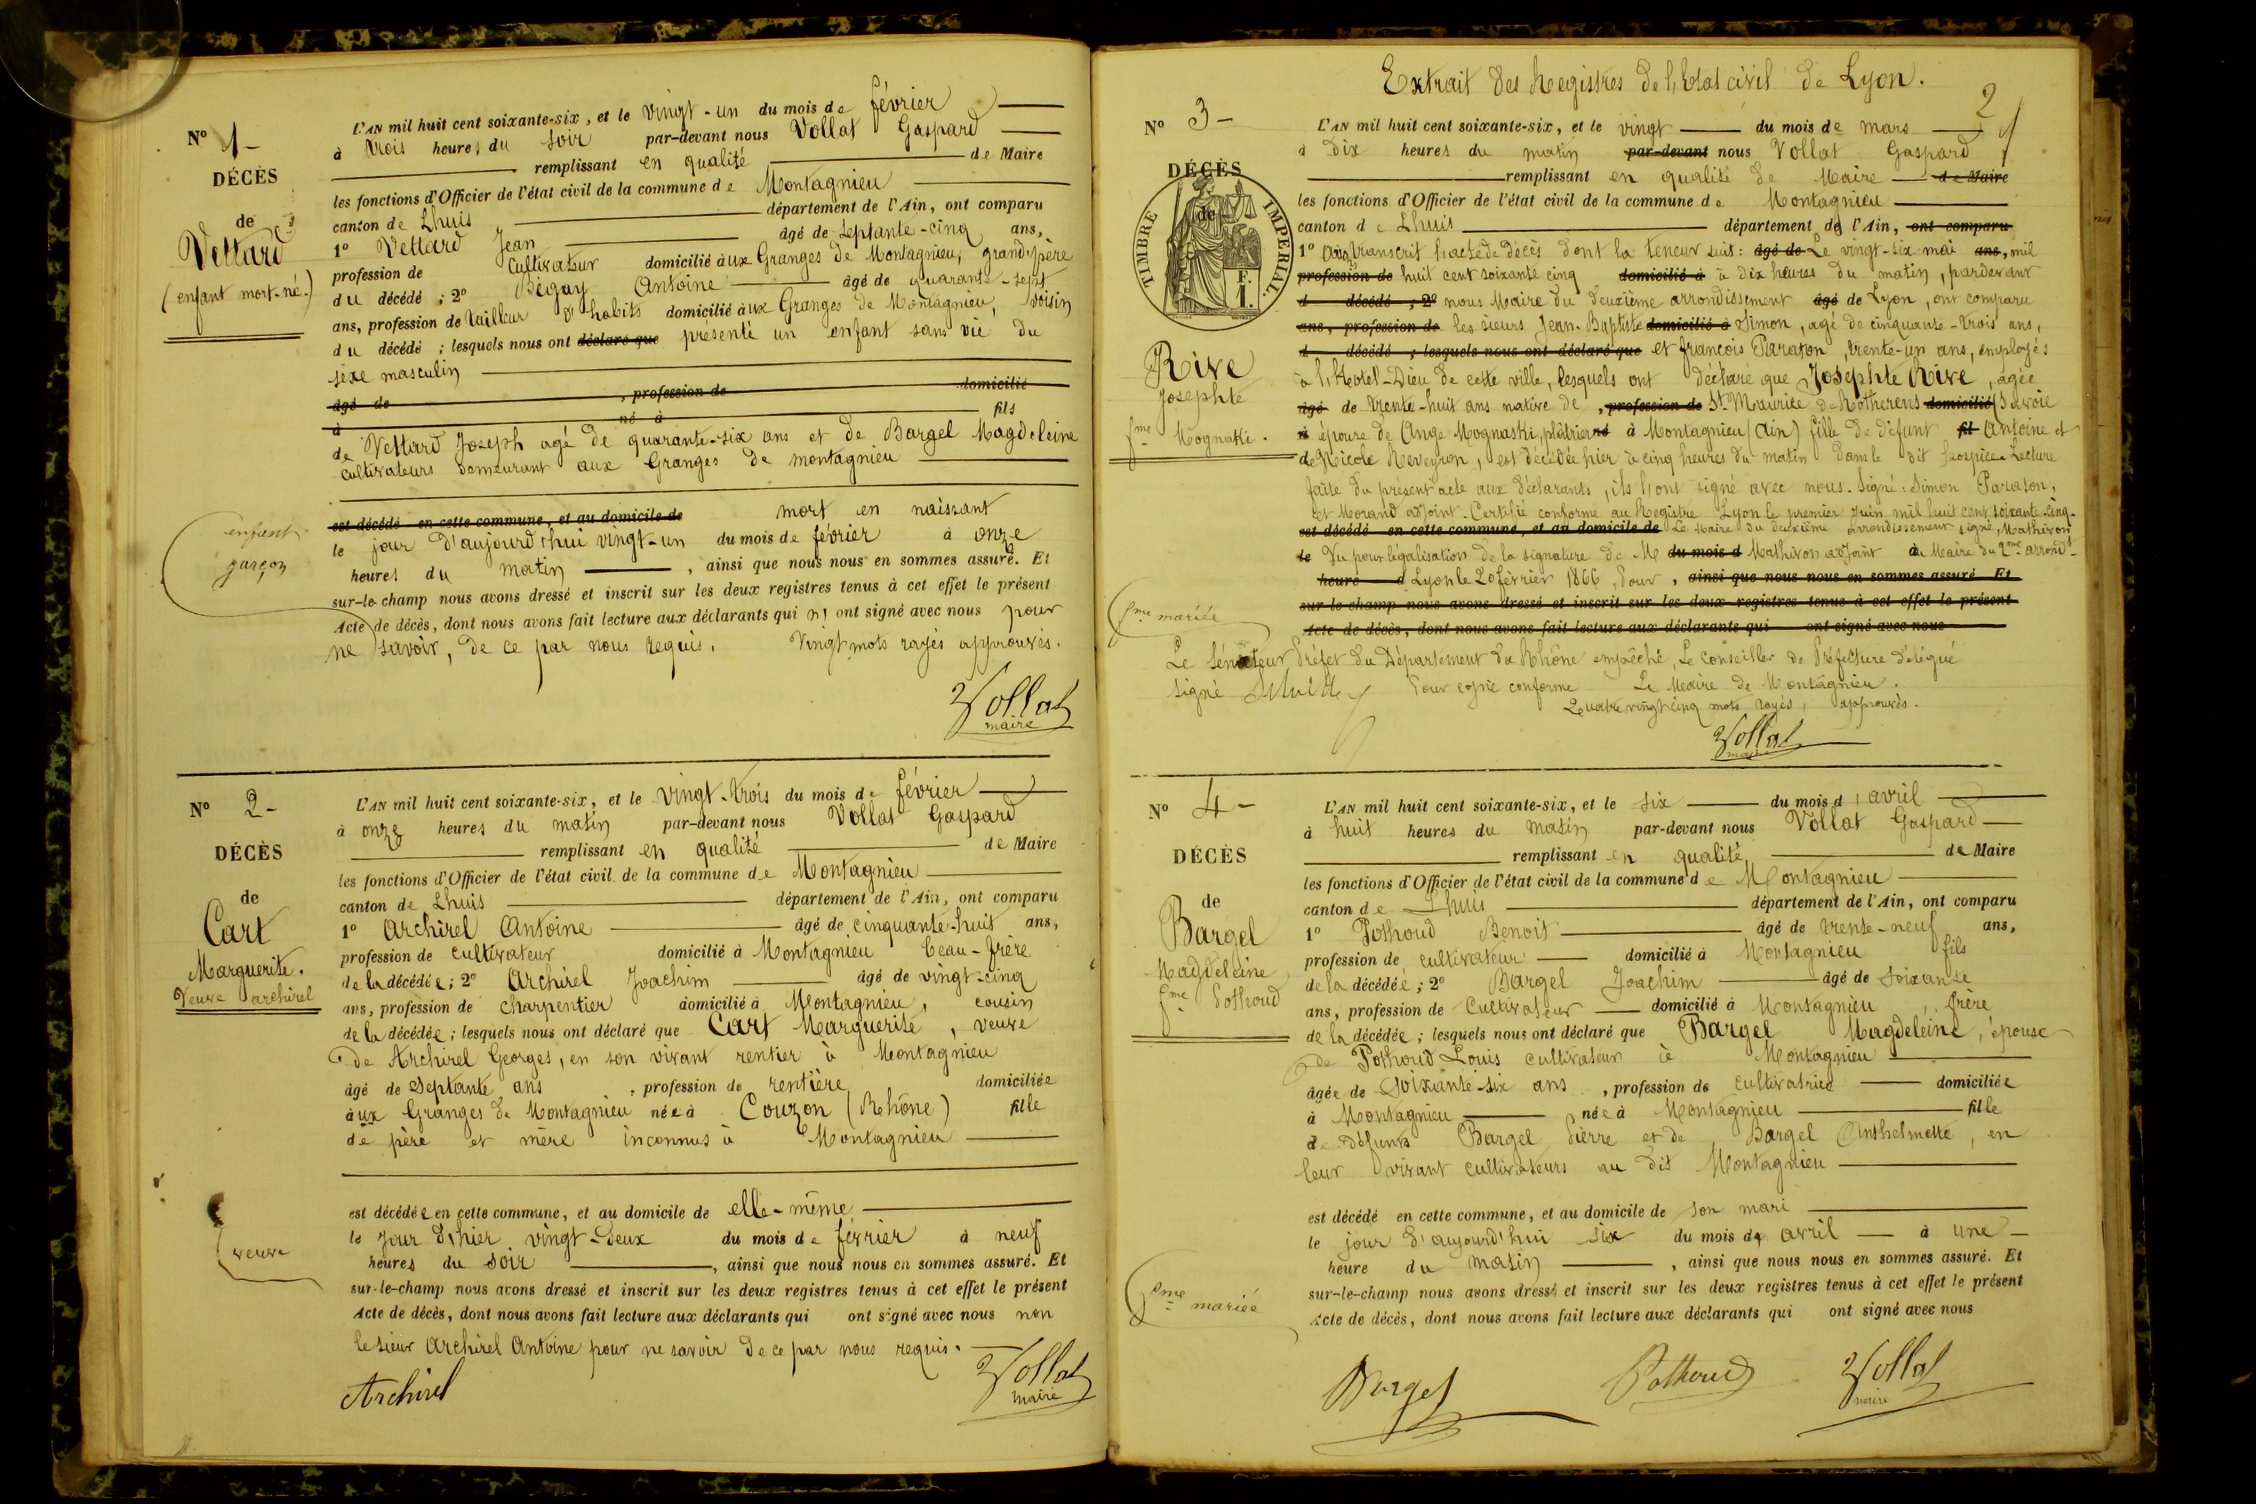 N° 1 -
DÉCÈS
de
Vettard
(enfant mort-né.)
L'AN mil huit cent soixante-six, et le vingt-un du mois de février
à trois heures du soir par-devant nous Vollat Gaspard
remplissant en qualité de Maire
les fonctions d'Officier de l'état civil de la commune de Montagnieu
canton de Lhuis département de l'Ain, ont comparu
1° Vettard Jean âgé de septante-cinq ans,
profession de cultivateur domicilié aux Granges de Montagnieu, grand-père
du décédé ; 2° Bégay Antoine âgé de quarante-sept
ans, profession de tailleur d'habits domicilié aux Granges de Montagnieu, voisin
du décédé ; lesquels nous ont déclaré que présenté un enfant sans vie du
sexe masculin
âgé de , profession de domicilié
à né à fils
de Vettard Joseph agé de quarante-six ans et de Bargel Magdeleine
cultivateurs demeurant aux Granges de montagnieu
est décédé en cette commune, et au domicile de mort en naissant
le jour d'aujourd'hui vingt-un du mois de février à onze
heures du matin , ainsi que nous nous en sommes assuré. Et
sur-le-champ nous avons dressé et inscrit sur les deux registres tenus à cet effet le présent
Acte de décès, dont nous avons fait lecture aux déclarants qui n'ont signé avec nous pour
ne savoir, de ce par nous requis. Vingt mots rayés approuvés.
enfant
garçon
Vollat
maire
N° 2 -
DÉCÈS
de
Cart
Marguerite.
Veuve archirel
L'AN mil huit cent soixante-six, et le vingt-trois du mois de février
à onze heures du matin par-devant nous Vollat Gaspard
remplissant en qualité de Maire
les fonctions d'Officier de l'état civil de la commune de Montagnieu
canton de Lhuis département de l'Ain, ont comparu
1° Archirel Antoine âgé de cinquante-huit ans,
profession de cultivateur domicilié à Montagnieu beau-frère
de la décédée ; 2° Archirel Joachim âgé de vingt-cinq
ans, profession de charpentier domicilié à Montagnieu, cousin
de la décédée ; lesquels nous ont déclaré que Cart Marguerite, veuve
de Archirel Georges, en son vivant rentier à Montagnieu
âgé de septante ans , profession de rentière domiciliée
aux Granges de Montagnieu née à Couzon (Rhône) fille
de père et mère inconnus à Montagnieu
est décédée en cette commune, et au domicile de elle-même
le jour d'hier vingt-deux du mois de février à neuf
heures du soir , ainsi que nous nous en sommes assuré. Et
sur-le-champ nous avons dressé et inscrit sur les deux registres tenus à cet effet le présent
Acte de décès, dont nous avons fait lecture aux déclarants qui ont signé avec nous non
le sieur Archirel Antoine pour ne savoir de ce par nous requis.
veuve
Archirel
Vollat
maire
Extrait des Registres de l'Etat civil de Lyon.
2
N° 3 -
DÉCÈS
de
TIMBRE IMPERIAL.
F.
1.
Rive
Josephte
fme Mognaki.
L'AN mil huit cent soixante-six, et le vingt du mois de mars
à dix heures du matin par-devant nous Vollat Gaspard
remplissant en qualité de Maire de Maire
les fonctions d'Officier de l'état civil de la commune de Montagnieu
canton de Lhuis département de l'Ain, ont comparu
1° transcrit l'acte de décès dont la teneur suit : âgé de Le vingt-six mai ans, mil
profession de huit cent soixante cinq domicilié à à dix heures du matin, pardevant
d décédé ; 2° nous Maire du deuxième arrondissement âgé de Lyon, ont comparu
ans, profession de les sieurs Jean-Baptiste domicilié à Simon, agé de cinquante-trois ans,
d décédé ; lesquels nous ont déclaré que et françois Paraton, trente-un ans, employés
à l'Hotel-Dieu de cette ville, lesquels ont déclaré que Josephte Rive, agée
âgé de trente-huit ans native de , profession de St Maurice de Rotherens domicilié (Savoie
à épouse de Ange Mognaski, plâtrier né à Montagnieu (Ain) fille de défunt fil Antoine et
de Nicole Reveyron, est décédée hier à cinq heures du matin dans le dit hospice. Lecture
faite du présent acte aux déclarants, ils l'ont signé avec nous. Signé : Simon Paraton,
et Morand adjoint. Certifié conforme au Registre Lyon le premier Juin mil huit cent soixante-cinq.
est décédé en cette commune, et au domicile de Le Maire du deuxième arrondissement signé, Mathivon
le Vu pour légalisation de la signature de M du mois d Mathivon adjoint au Maire du 2me arrondt
heure d Lyon le 20 février 1866, Pour , ainsi que nous nous en sommes assuré. Et
sur-le-champ nous avons dressé et inscrit sur les deux registres tenus à cet effet le présent
Acte de décès, dont nous avons fait lecture aux déclarants qui ont signé avec nous
fme mariée
Le Sénateur Préfet du Département du Rhône empêché, Le Conseiller de Préfecture délégué
signé Pour copie conforme Le Maire de Montagnieu.
Quatre vingt cinq mots rayés, approuvés.
Vollat
maire
N° 4 -
DÉCÈS
de
Bargel
Magdeleine
fme Pothoud
L'AN mil huit cent soixante-six, et le six du mois d'avril
à huit heures du matin par-devant nous Vollat Gaspard
remplissant en qualité de Maire
les fonctions d'Officier de l'état civil de la commune de Montagnieu
canton de Lhuis département de l'Ain, ont comparu
1° Pothoud Benoit âgé de trente-neuf ans,
profession de cultivateur domicilié à Montagnieu fils
de la décédée ; 2° Bargel Joachim âgé de soixante
ans, profession de cultivateur domicilié à Montagnieu, frère
de la décédée ; lesquels nous ont déclaré que Bargel Magdeleine, épouse
de Pothoud Louis cultivateur à Montagnieu
âgée de soixante-six ans , profession de cultivatrice domiciliée
à Montagnieu née à Montagnieu fille
de défunts Bargel Pierre et de Bargel Anthelmette, en
leur vivant cultivateurs au dit Montagnieu
est décédé en cette commune, et au domicile de son mari
le jour d'aujourd'hui six du mois d'avril à une
heure du matin , ainsi que nous nous en sommes assuré. Et
sur-le-champ nous avons dressé et inscrit sur les deux registres tenus à cet effet le présent
Acte de décès, dont nous avons fait lecture aux déclarants qui ont signé avec nous
fme mariée
Bargel
Pothoud
Vollat
maire